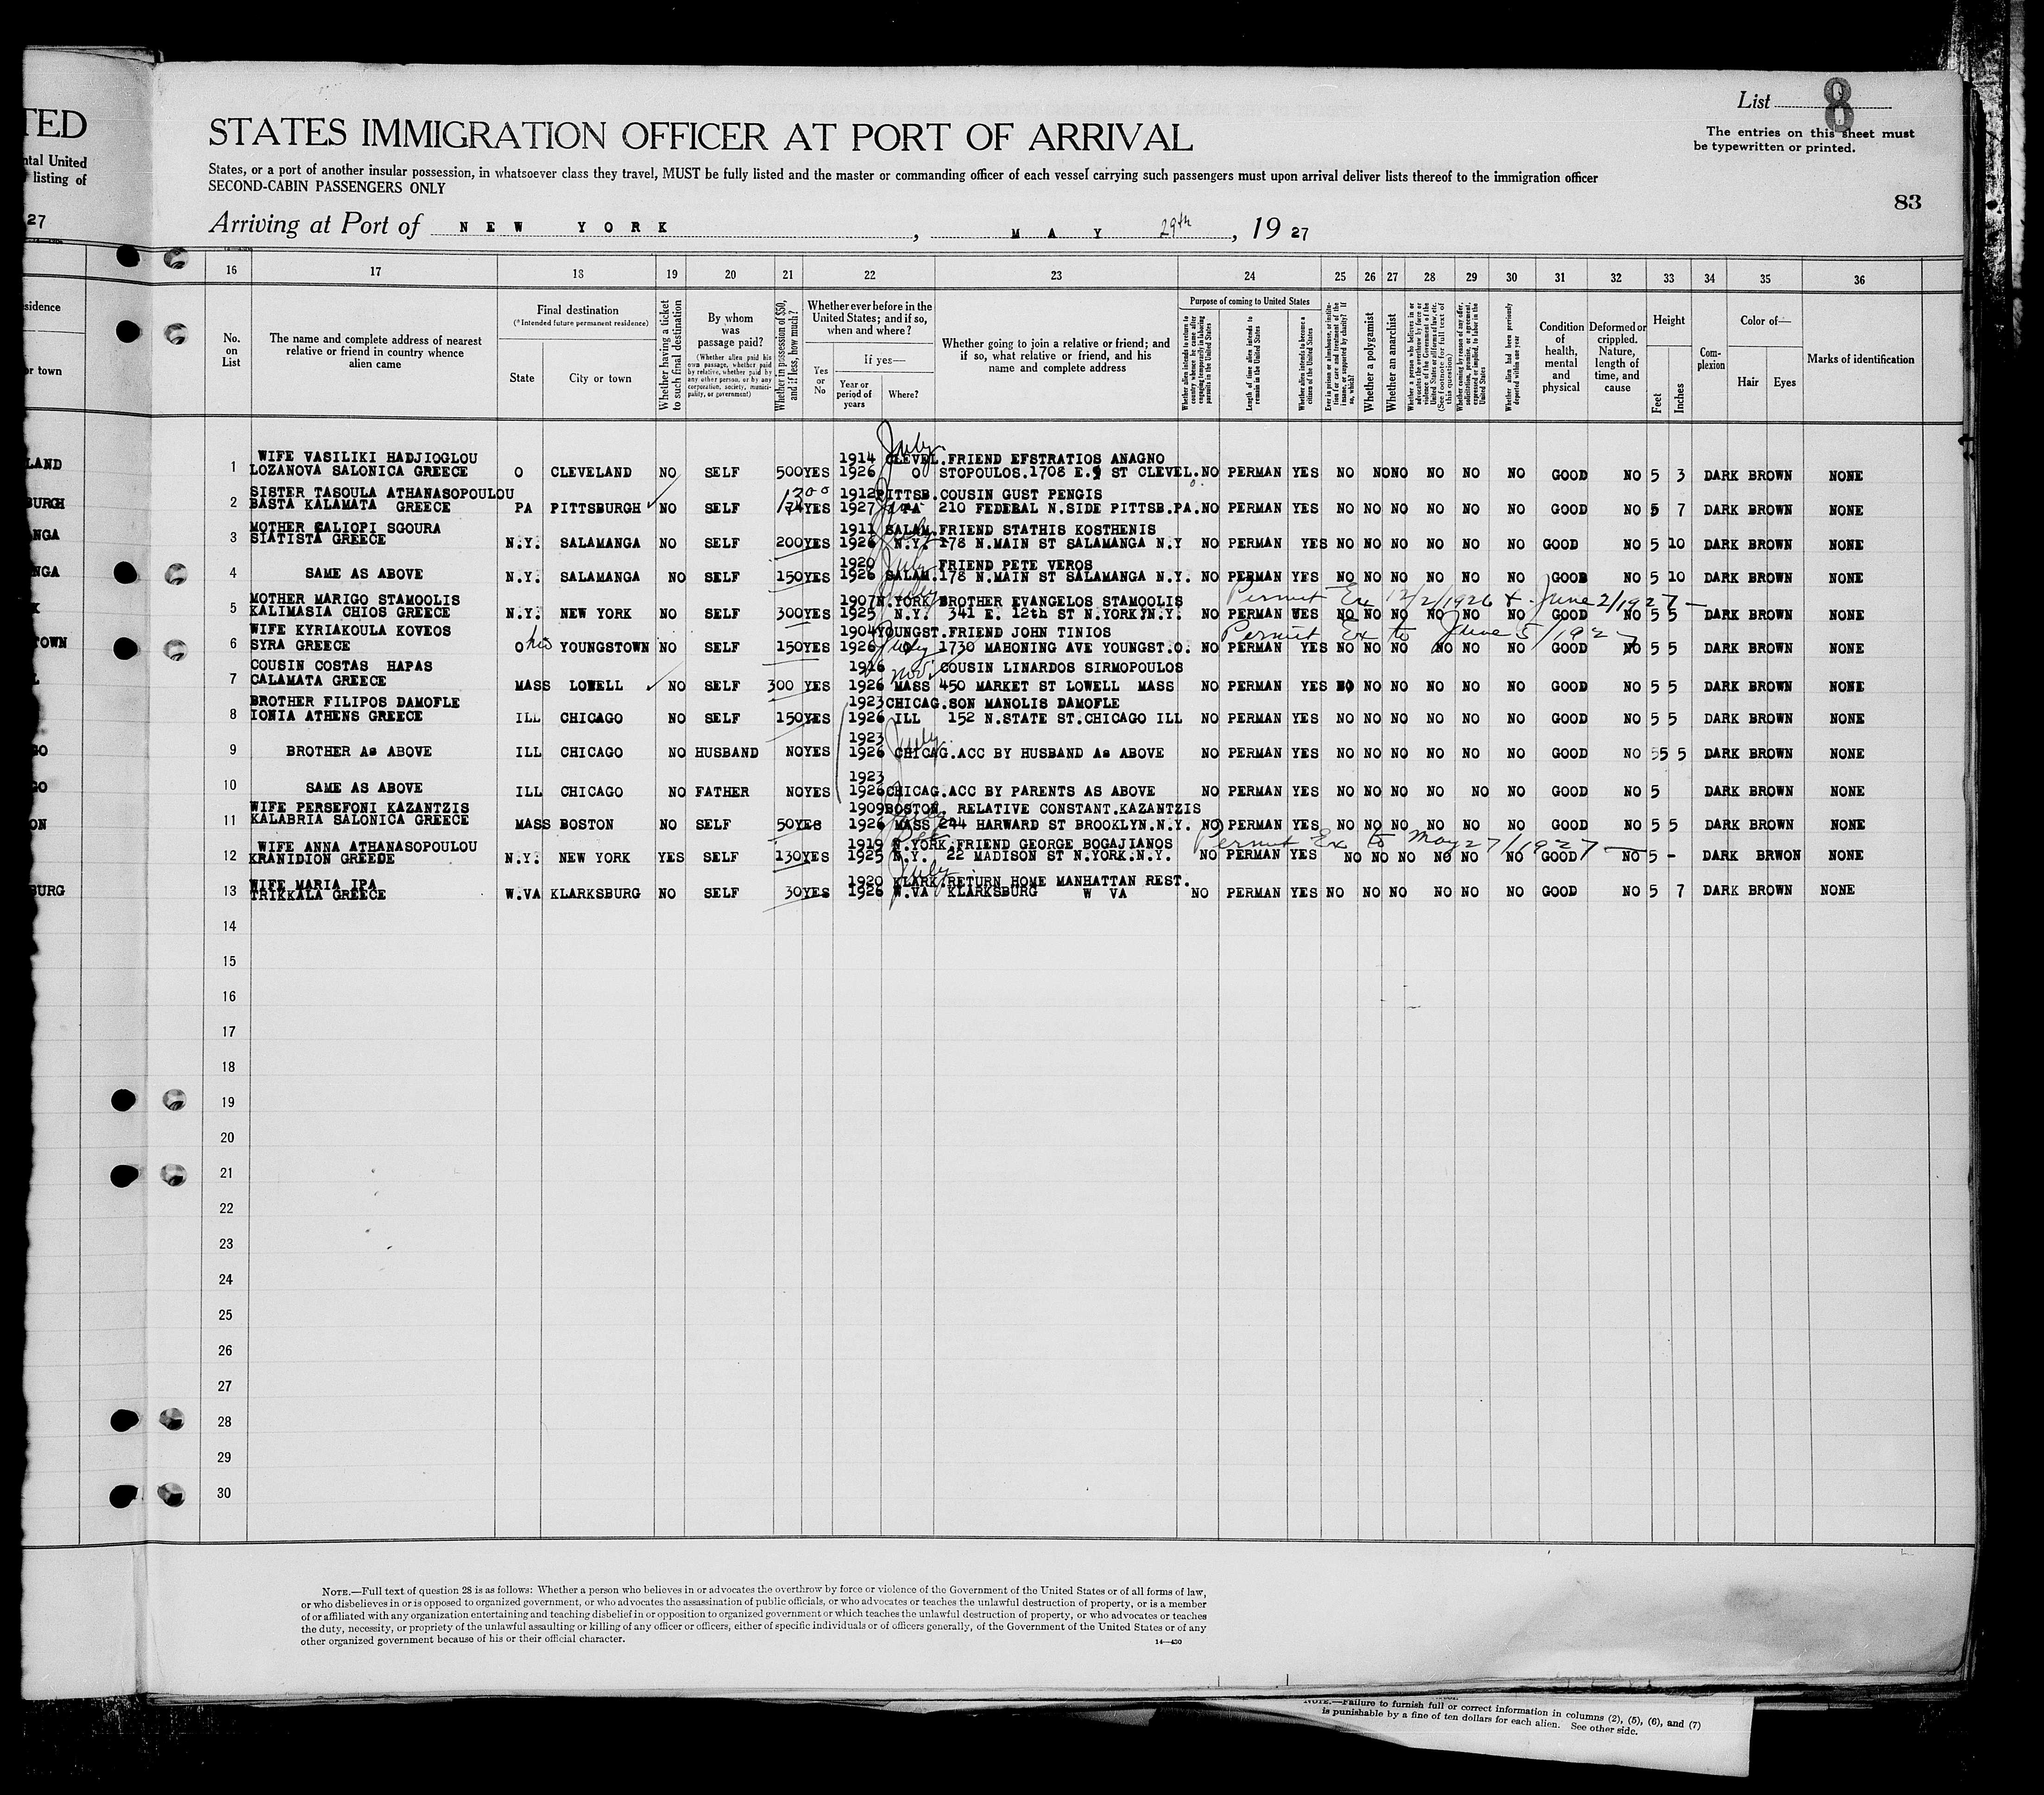 List 8
The entries on this sheet must
be typewritten or printed.
TED
STATES IMMIGRATION OFFICER AT PORT OF ARRIVAL
ntal United
listing of
States, or a port of another insular possession, in whatsoever class they travel, MUST be fully listed and the master or commanding officer of each vessel carrying such passengers must upon arrival deliver lists thereof to the immigration officer
SECOND-CABIN PASSENGERS ONLY
83
27
Arriving at Port of NEW YORK, MAY 29th, 19 27
16 17 18 19 20 21 22 23 24 25 26 27 28 29 30 31 32 33 34 35 36
No. on List
The name and complete address of nearest relative or friend in country whence alien came
Final destination
(*Intended future permanent residence)
State
City or town
Whether having a ticket to such final destination
By whom was passage paid?
(Whether alien paid his own passage, whether paid by relative, whether paid by any other person, or by any corporation, society, municipality, or government)
Whether in possession of $50, and if less, how much?
Whether ever before in the United States; and if so, when and where?
Yes or No
If yes—
Year or period of years
Where?
Whether going to join a relative or friend; and if so, what relative or friend, and his name and complete address
Purpose of coming to United States
Whether alien intends to return to country whence he came after engaging temporarily in laboring pursuits in the United States
Length of time alien intends to remain in the United States
Whether alien intends to become a citizen of the United States
Ever in prison or almshouse, or institution for care and treatment of the insane, or supported by charity? If so, which?
Whether a polygamist
Whether an anarchist
Whether a person who believes in or advocates the overthrow by force or violence of the Government of the United States or all forms of law, etc. (See footnote for full text of this question)
Whether coming by reason of any offer, solicitation, promise, or agreement, expressed or implied, to labor in the United States
Whether alien had been previously deported within one year
Condition of health, mental and physical
Deformed or crippled. Nature, length of time, and cause
Height
Feet
Inches
Complexion
Color of—
Hair
Eyes
Marks of identification
sidence
or town
July
WIFE VASILIKI HADJIOGLOU 1914 CLEVEL. FRIEND EFSTRATIOS ANAGNO
LAND 1 LOZANOVA SALONICA GREECE O CLEVELAND NO SELF 500 YES 1926 O STOPOULOS.1708 E.9 ST CLEVEL. NO PERMAN YES NO NO NO NO NO NO GOOD NO 5 3 DARK BROWN NONE
SISTER TASOULA ATHANASOPOULOU 1300 1912 PITTSB. COUSIN GUST PENGIS
BURGH 2 BASTA KALAMATA GREECE PA PITTSBURGH NO SELF YES 1927 PA 210 FEDERAL N.SIDE PITTSB.PA. NO PERMAN YES NO NO NO NO NO NO GOOD NO 5 7 DARK BROWN NONE
MOTHER CALIOPI SGOURA 1911 SALAM. FRIEND STATHIS KOSTHENIS
NGA 3 SIATISTA GREECE N.Y. SALAMANGA NO SELF 200 YES 1926 N.Y. 178 N.MAIN ST SALAMANGA N.Y NO PERMAN YES NO NO NO NO NO NO GOOD NO 5 10 DARK BROWN NONE
1920 July FRIEND PETE VEROS
NGA 4 SAME AS ABOVE N.Y. SALAMANGA NO SELF 150 YES 1926 SALAM. 178 N.MAIN ST SALAMANGA N.Y. NO PERMAN YES NO NO NO NO NO NO GOOD NO 5 10 DARK BROWN NONE
MOTHER MARIGO STAMOOLIS 1907 N.YORK BROTHER EVANGELOS STAMOOLIS Permit Ex 12/2/1926 + June 2/1927 -
K 5 KALIMASIA CHIOS GREECE N.Y. NEW YORK NO SELF 300 YES 1925 N.Y. 341 E. 12th ST N.YORK N.Y. NO PERMAN YES NO NO NO NO NO NO GOOD NO 5 5 DARK BROWN NONE
WIFE KYRIAKOULA KOVEOS 1904 YOUNGST. FRIEND JOHN TINIOS Permit Ex to June 5/1927
TOWN 6 SYRA GREECE Ohio YOUNGSTOWN NO SELF 150 YES 1926 O July 1730 MAHONING AVE YOUNGST.O. NO PERMAN YES NO NO NO NO NO NO GOOD NO 5 5 DARK BROWN NONE
COUSIN COSTAS HAPAS 1916 Nov. COUSIN LINARDOS SIRMOPOULOS
L 7 CALAMATA GREECE MASS LOWELL NO SELF 300 YES 1926 MASS 450 MARKET ST LOWELL MASS NO PERMAN YES NO NO NO NO NO NO GOOD NO 5 5 DARK BROWN NONE
BROTHER FILIPOS DAMOFLE 1923 CHICAG. SON MANOLIS DAMOFLE
8 IONIA ATHENS GREECE ILL CHICAGO NO SELF 150 YES 1926 ILL 152 N.STATE ST.CHICAGO ILL NO PERMAN YES NO NO NO NO NO NO GOOD NO 5 5 DARK BROWN NONE
1923 July
GO 9 BROTHER As ABOVE ILL CHICAGO NO HUSBAND NO YES 1926 CHICAG. ACC BY HUSBAND As ABOVE NO PERMAN YES NO NO NO NO NO NO GOOD NO 55 5 DARK BROWN NONE
1923
GO 10 SAME AS ABOVE ILL CHICAGO NO FATHER NO YES 1926 CHICAG. ACC BY PARENTS AS ABOVE NO PERMAN YES NO NO NO NO NO NO GOOD NO 5 DARK BROWN NONE
WIFE PERSEFONI KAZANTZIS 1909 BOSTON RELATIVE CONSTANT.KAZANTZIS
ON 11 KALABRIA SALONICA GREECE MASS BOSTON NO SELF 50 YES 1926 MASS 244 HARWARD ST BROOKLYN.N.Y. NO PERMAN YES NO NO NO NO NO NO GOOD NO 5 5 DARK BROWN NONE
WIFE ANNA ATHANASOPOULOU 1919 Dec N.YORK. FRIEND GEORGE BOGAJIANOS Permit Ex to May 27/1927 -
12 KRANIDION GREEDE N.Y. NEW YORK YES SELF 130 YES 1925 N.Y. 22 MADISON ST N.YORK.N.Y. NO PERMAN YES NO NO NO NO NO NO GOOD NO 5 - DARK BRWON NONE
WIFE MARIA IPA 1920 July KLARK. RETURN HOME MANHATTAN REST.
BURG 13 TRIKKALA GREECE W.VA KLARKSBURG NO SELF 30 YES 1926 W.VA KLARKSBURG W VA NO PERMAN YES NO NO NO NO NO NO GOOD NO 5 7 DARK BROWN NONE
14
15
16
17
18
19
20
21
22
23
24
25
26
27
28
29
30
NOTE.—Full text of question 28 is as follows: Whether a person who believes in or advocates the overthrow by force or violence of the Government of the United States or of all forms of law,
or who disbelieves in or is opposed to organized government, or who advocates the assassination of public officials, or who advocates or teaches the unlawful destruction of property, or is a member
of or affiliated with any organization entertaining and teaching disbelief in or opposition to organized government or which teaches the unlawful destruction of property, or who advocates or teaches
the duty, necessity, or propriety of the unlawful assaulting or killing of any officer or officers, either of specific individuals or of officers generally, of the Government of the United States or of any
other organized government because of his or their official character.
14—430
NOTE.—Failure to furnish full or correct information in columns (2), (5), (6), and (7)
is punishable by a fine of ten dollars for each alien. See other side.